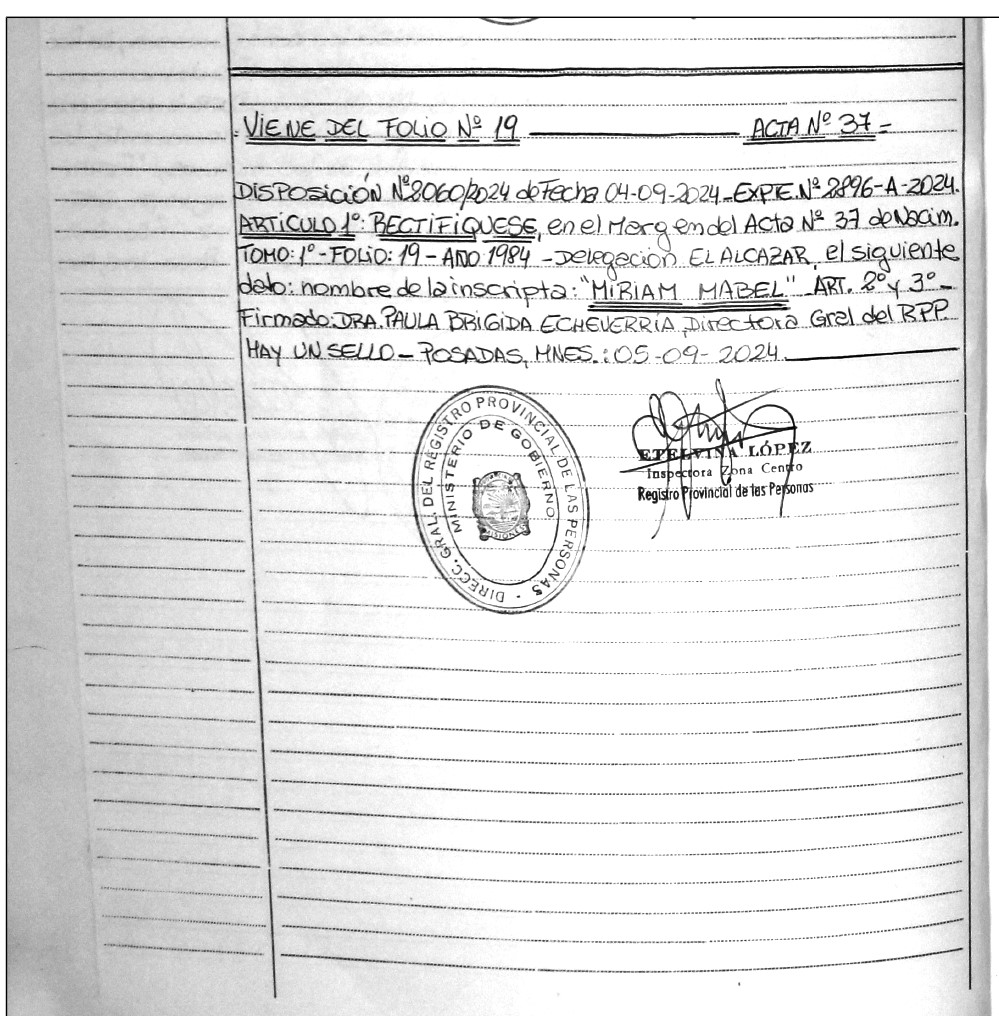 VIENE DEL FOLIO Nº 19 ACTA Nº 37=
DISPOSICIÓN Nº2060/2024 de Fecha 04-09-2024-EXPTE.Nº 2896-A-2024.
ARTICULO 1º: RECTIFIQUESE, en el Margen del Acta Nº 37 de Nacim.
TOMO: 1º-FOLIO: 19-AÑO 1984 -Delegación EL ALCAZAR, el siguiente
dato: nombre de la inscripta: "MIRIAM MABEL" ART. 2º y 3º-
Firmado: DRA. PAULA BRIGIDA ECHEVERRIA, Directora Gral del RPP.
HAY UN SELLO- POSADAS, MNES.: 05-09-2024
DIRECC. GRAL. DEL REGISTRO PROVINCIAL DE LAS PERSONAS -
MINISTERIO DE GOBIERNO
MISIONES
ETELVINA LÓPEZ
Inspectora Zona Centro
Registro Provincial de las Personas